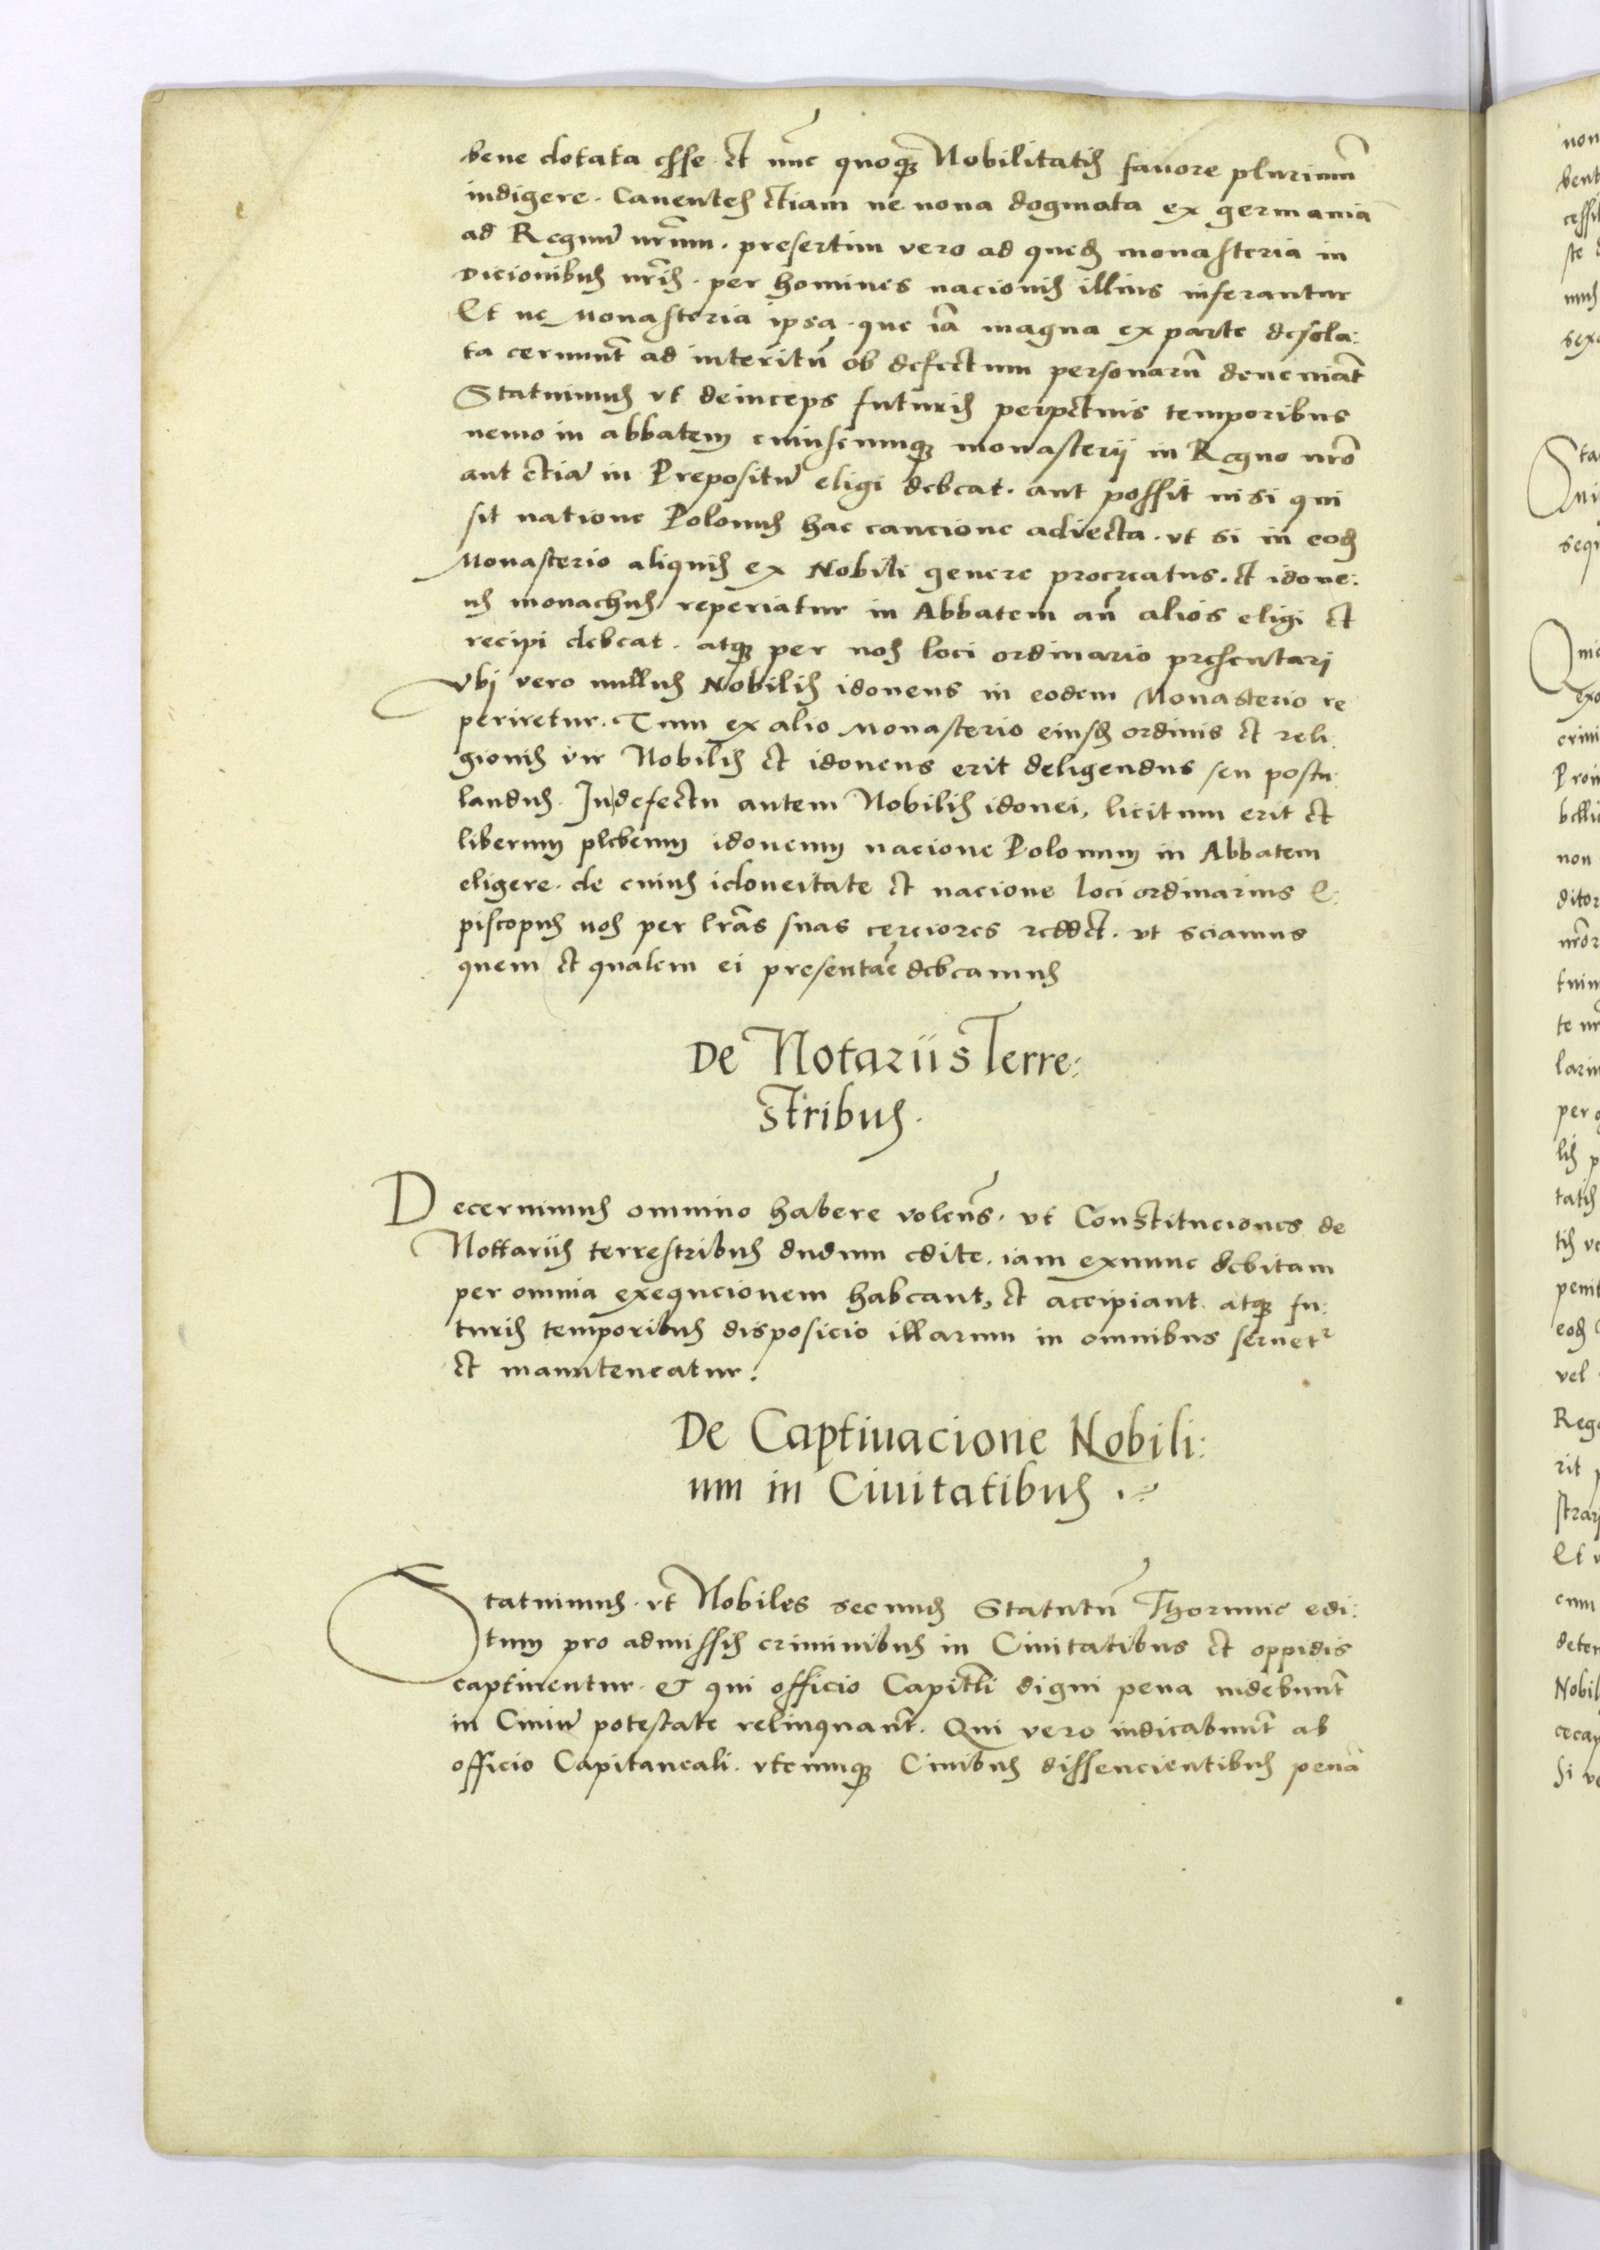 bene dotata esse et nūc quoqȝ Nobilitatis fauore plurimū
indigere. Cauentes etiam ne noua dogmata ex germania
ad Regnū nr̄um. presertim vero ad quedȝ monasteria in
Dicionibus nr̄is. per homines nacionis illius inferantur
Et ne Monasteria ipsa. que iā magna ex parte desola:
ta cernunt̄ ad interitū ob defectum personarū deueniāt
Statuimus vt deinceps futuris perpetuis temporibus
nemo in abbatem cuiuscunqȝ monasterij in Regno nr̄o
aut etiā in Prepositū eligi debeat. aut possit nisi qui
sit natione Polonus hac caucione adiecta. vt si in eodȝ
Monasterio aliquis ex Nobili genere procreatus. et idone:
us monachus reperiatur in Abbatem an̄ alios eligi et
recipi debeat. atqȝ per nos loci ordinario presentari
Vbi vero nullus Nobilis idoneus in eodem Monasterio re
periretur. Tum ex alio Monasterio eiusdȝ ordinis et reli:
gionis vir Nobilis et idoneus erit deligendus seu postu:
landus. In defectu autem Nobilis idonei, licitum erit et
liberum plebeum idoneum nacione Polonum in Abbatem
eligere. de cuius idoneitate et nacione loci ordinarius E:
piscopus nos per lr̄as suas cerciores reddet. vt sciamus
quem et qualem ei presentar̄e debeamus
De Notariis Terre:
stribus.
Decernimus omnino habere volen̄s. vt Constituciones de
Nottariis terrestribus dudum edite. iam exnunc debitam
per omnia exequcionem habeant, et accipiant. atqȝ fu:
turis temporibus disposicio illarum in omnibus seruetr
et manuteneatur.
De Captiuacione Nobili:
um in Ciuitatibus.
Statuimus. vt Nobiles secundȝ Statutū Thorunie edi:
tum pro admissis criminibus in Ciuitatibus et oppidis
captiuentur. & qui officio Capitn̄li digni pena uidebunt̄
in Ciuiū potestate relinquant̄. Qui vero iudicabunt̄ ab
officio Capitaneali. vtcunqȝ Ciuibus dissencientibus penā